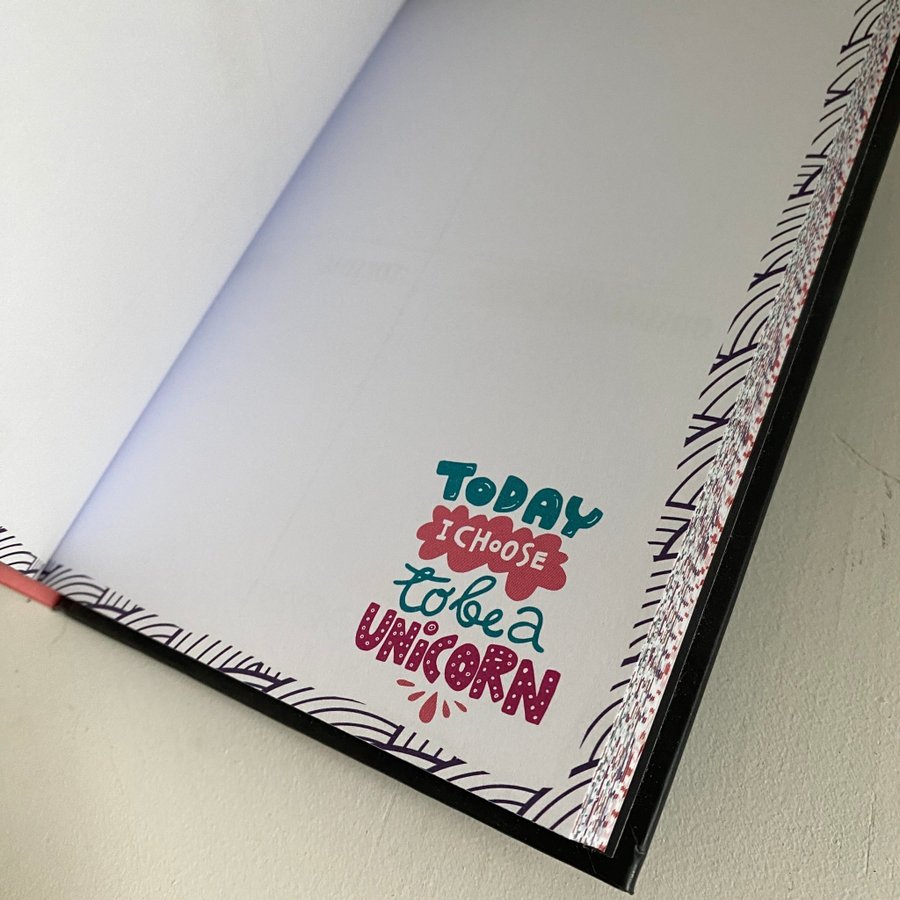 TODAY
I CHOOSE
to be a
UNiCORN